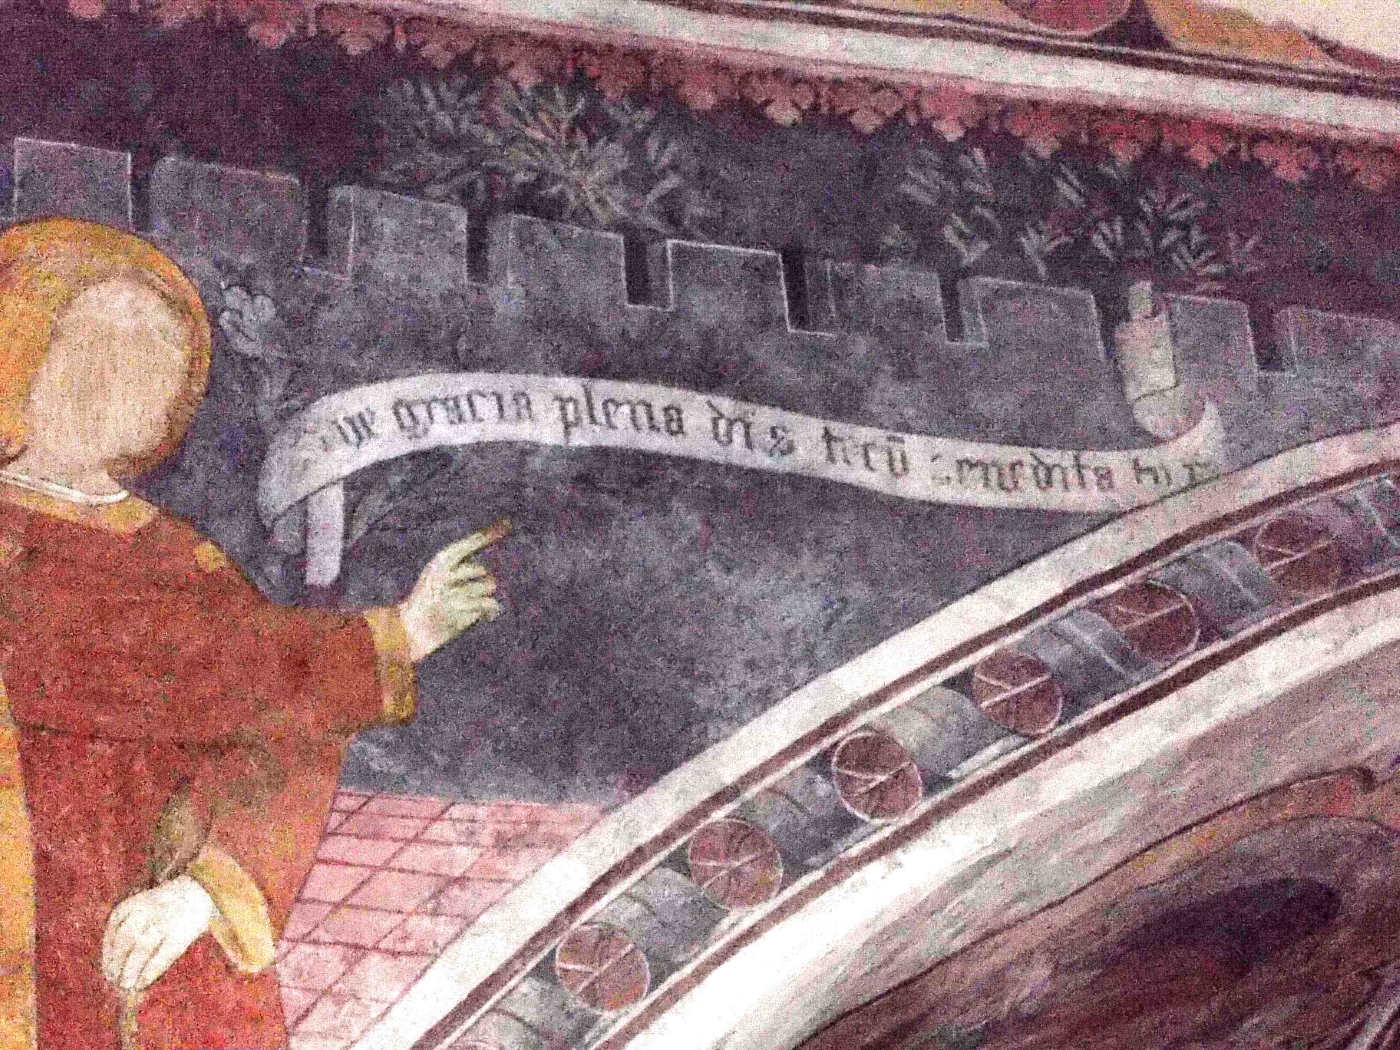 ave gracia plena dn̄s tecū benedita tu